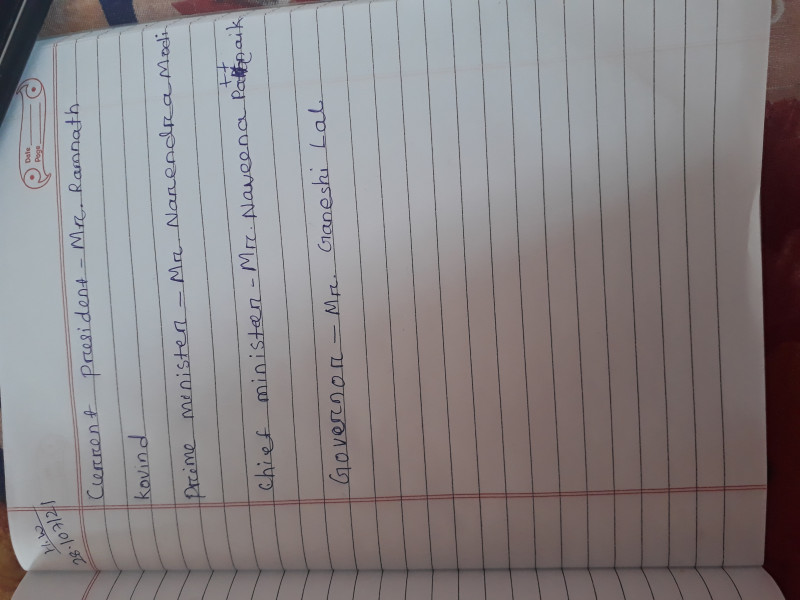 H.W
28.107121
Date
Page
Current President - Mr. Ramnath
Kovind
Prime minister - Mr. Narendra Modi
Chief minister - Mr. Naveena Pattnaik
Governor - Mr. Ganeshi Lal